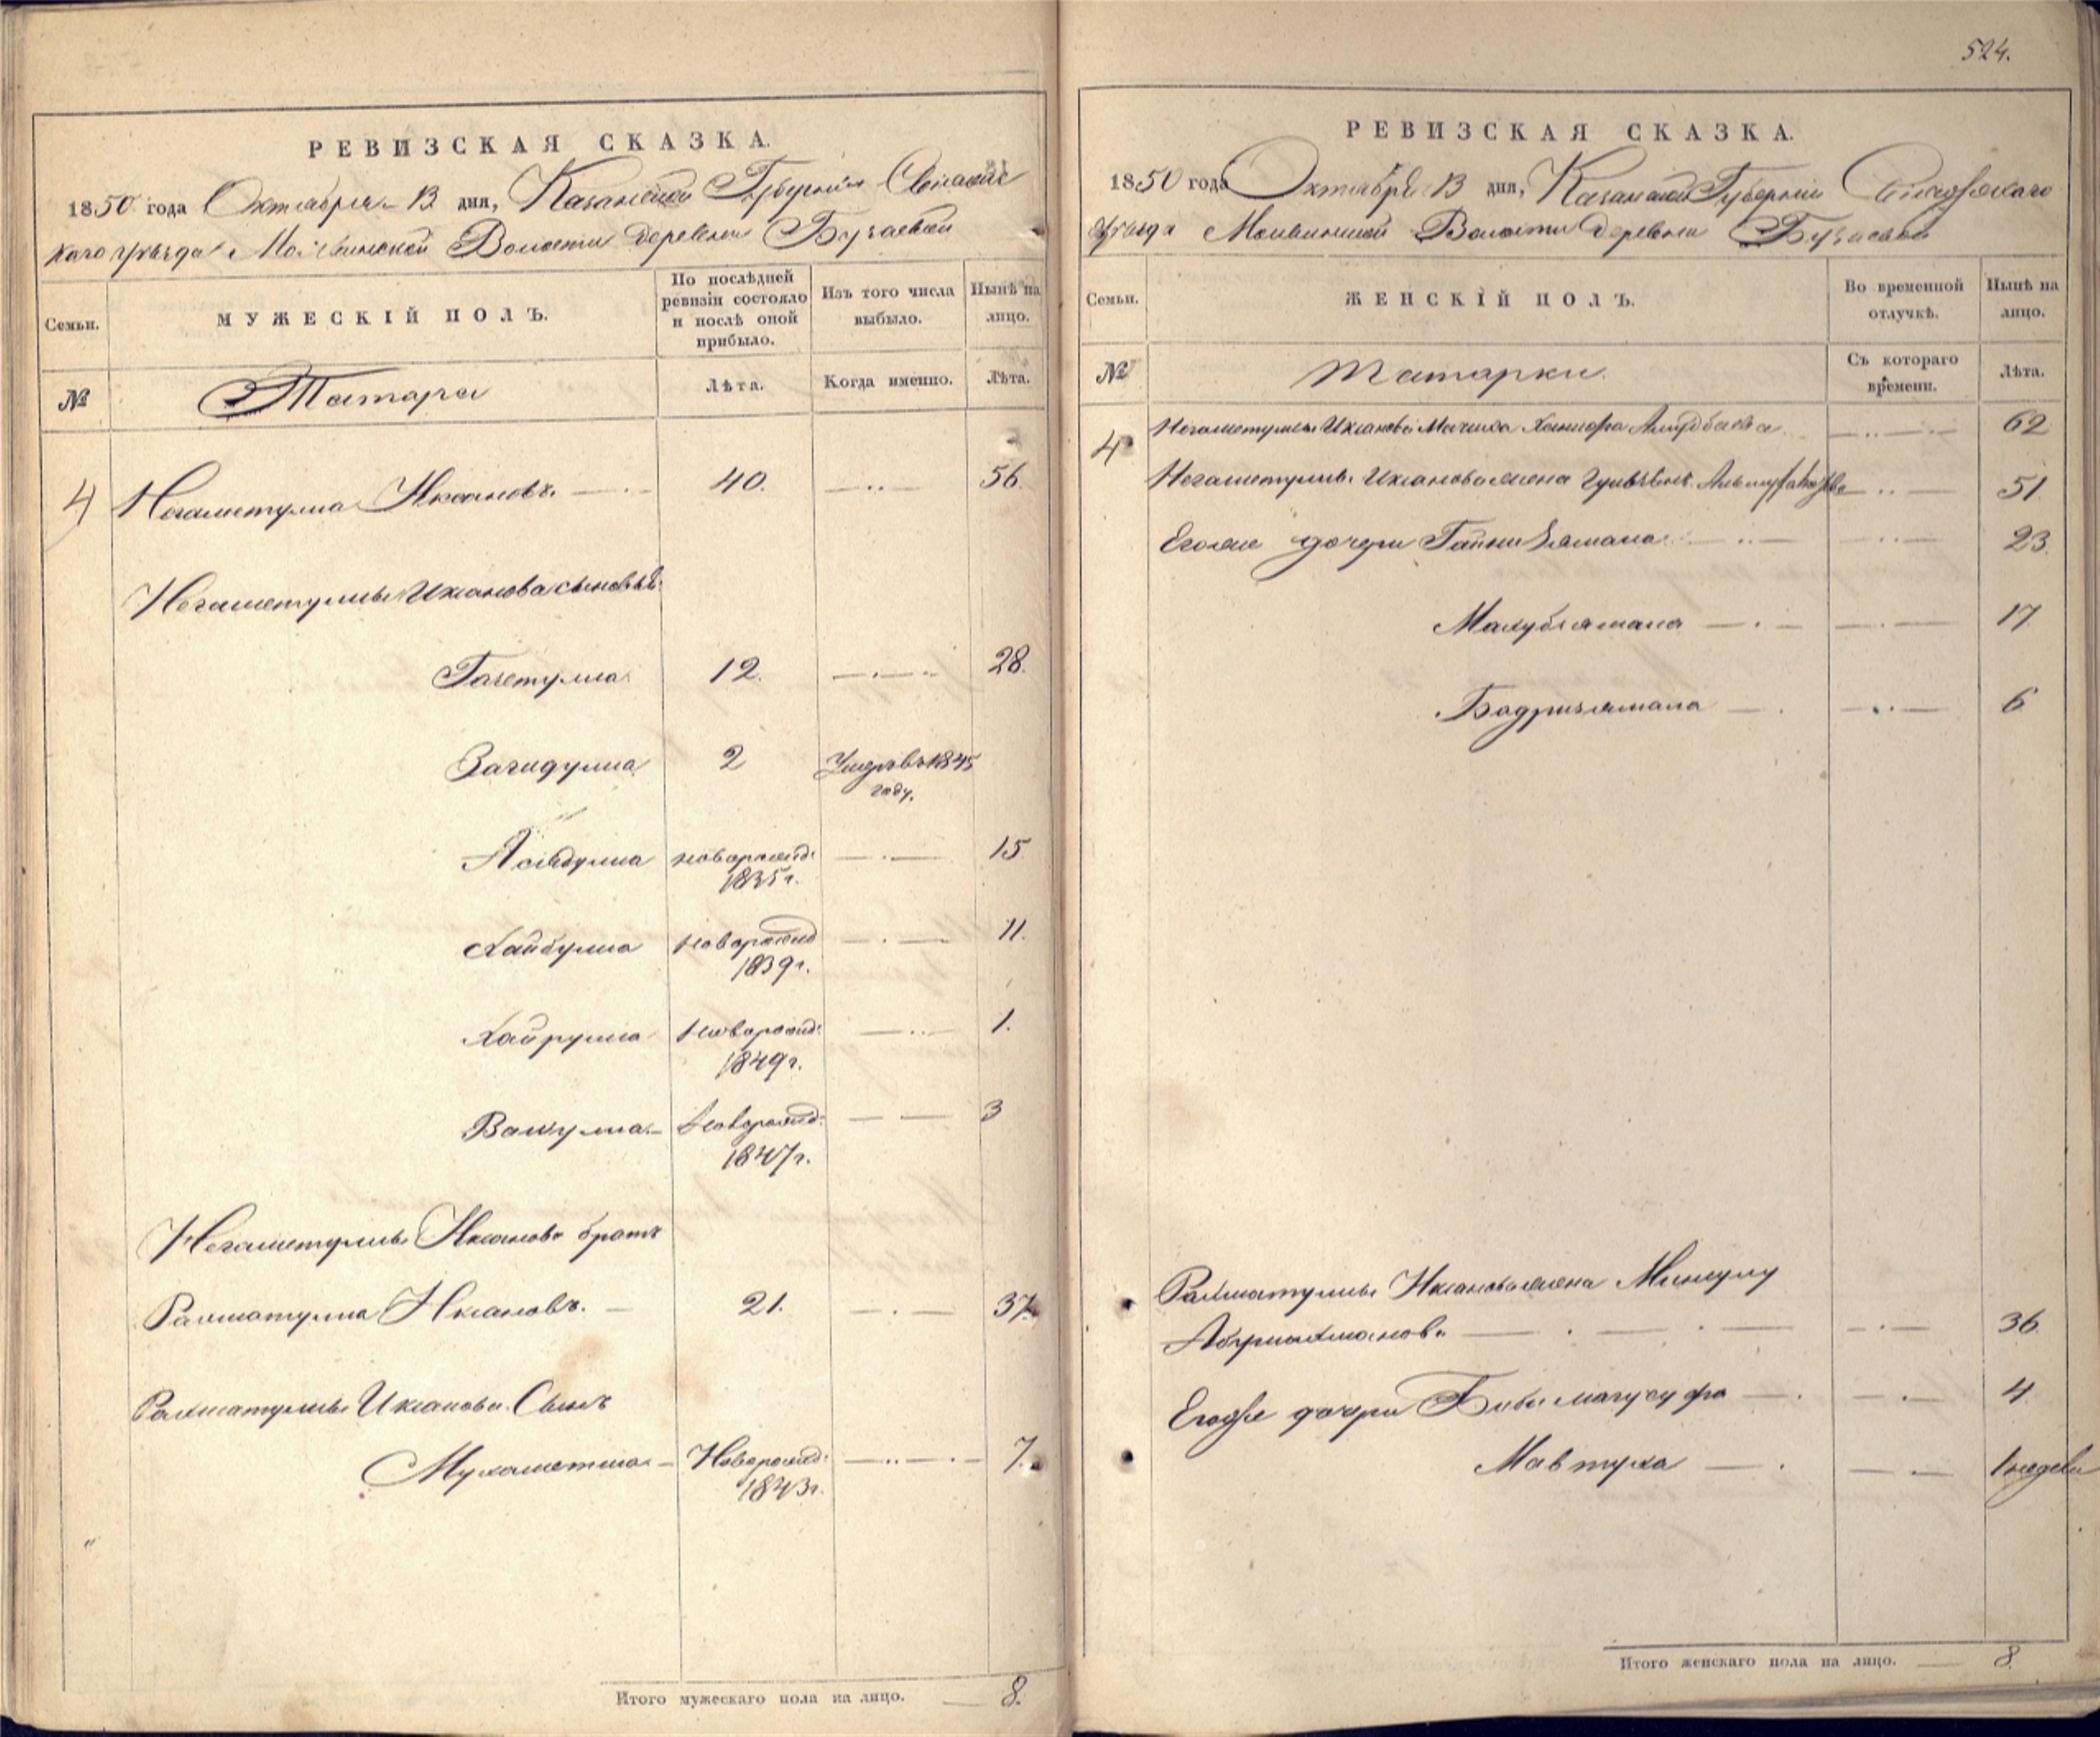 РЕВИЗСКАЯ СКАЗКА.
1850 года Октября 13 дня, Казанской Губернии Свіяжс
каго уѣзда Волости деревни Бузаевой
Семьи.
МУЖЕСКІЙ ПОЛЪ.
По послѣдней ревизіи состояло и послѣ оной прибыло.
Изъ того числа выбыло.
Нынѣ на лицо.
№
Татара
Лѣта.
Когда именно.
Лѣта.
4 Негаметулла Иксановъ. 40. 56.
Негаметуллы Иксанова сыновья:
Гатетулла 12. 28.
Загидулла 2 Умеръ въ 1845
году.
Асядулла новорожд: 15
1835 г.
Хайбулла новорожд 11.
1839 г.
Хайрулла Новорожд: 1.
1849 г.
Валиулла Новорожд: 3
1847 г.
Негаметуллы Иксанова братъ
Рахматулла Иксановъ. 21. 37.
Рахматуллы Иксанова Сынъ
Мухаметша Новорожд: 7.
1843 г.
Итого мужескаго пола на лицо. 8.
524.
РЕВИЗСКАЯ СКАЗКА.
1850 года Октября 13 дня, Казанской Губерніи Свіяжскаго
Уѣзда Волости деревни Бузаевой
Семьи.
ЖЕНСКІЙ ПОЛЪ.
Во временной отлучкѣ.
Нынѣ на лицо.
№
Татарки.
Съ котораго времени.
Лѣта.
4 Негаметуллы Иксанова Мачиха 62
Негаметуллы Иксанова жена 51
Его же дочери Гайнизямала 23.
Махубзямала 17
Бадризямала 6
Рахматуллы Иксанова жена Минсулу
Абдрахманова 36.
Его же дочери Биби магусуфа 4.
Мавтуха 1 недели
Итого женскаго пола на лицо. 8.